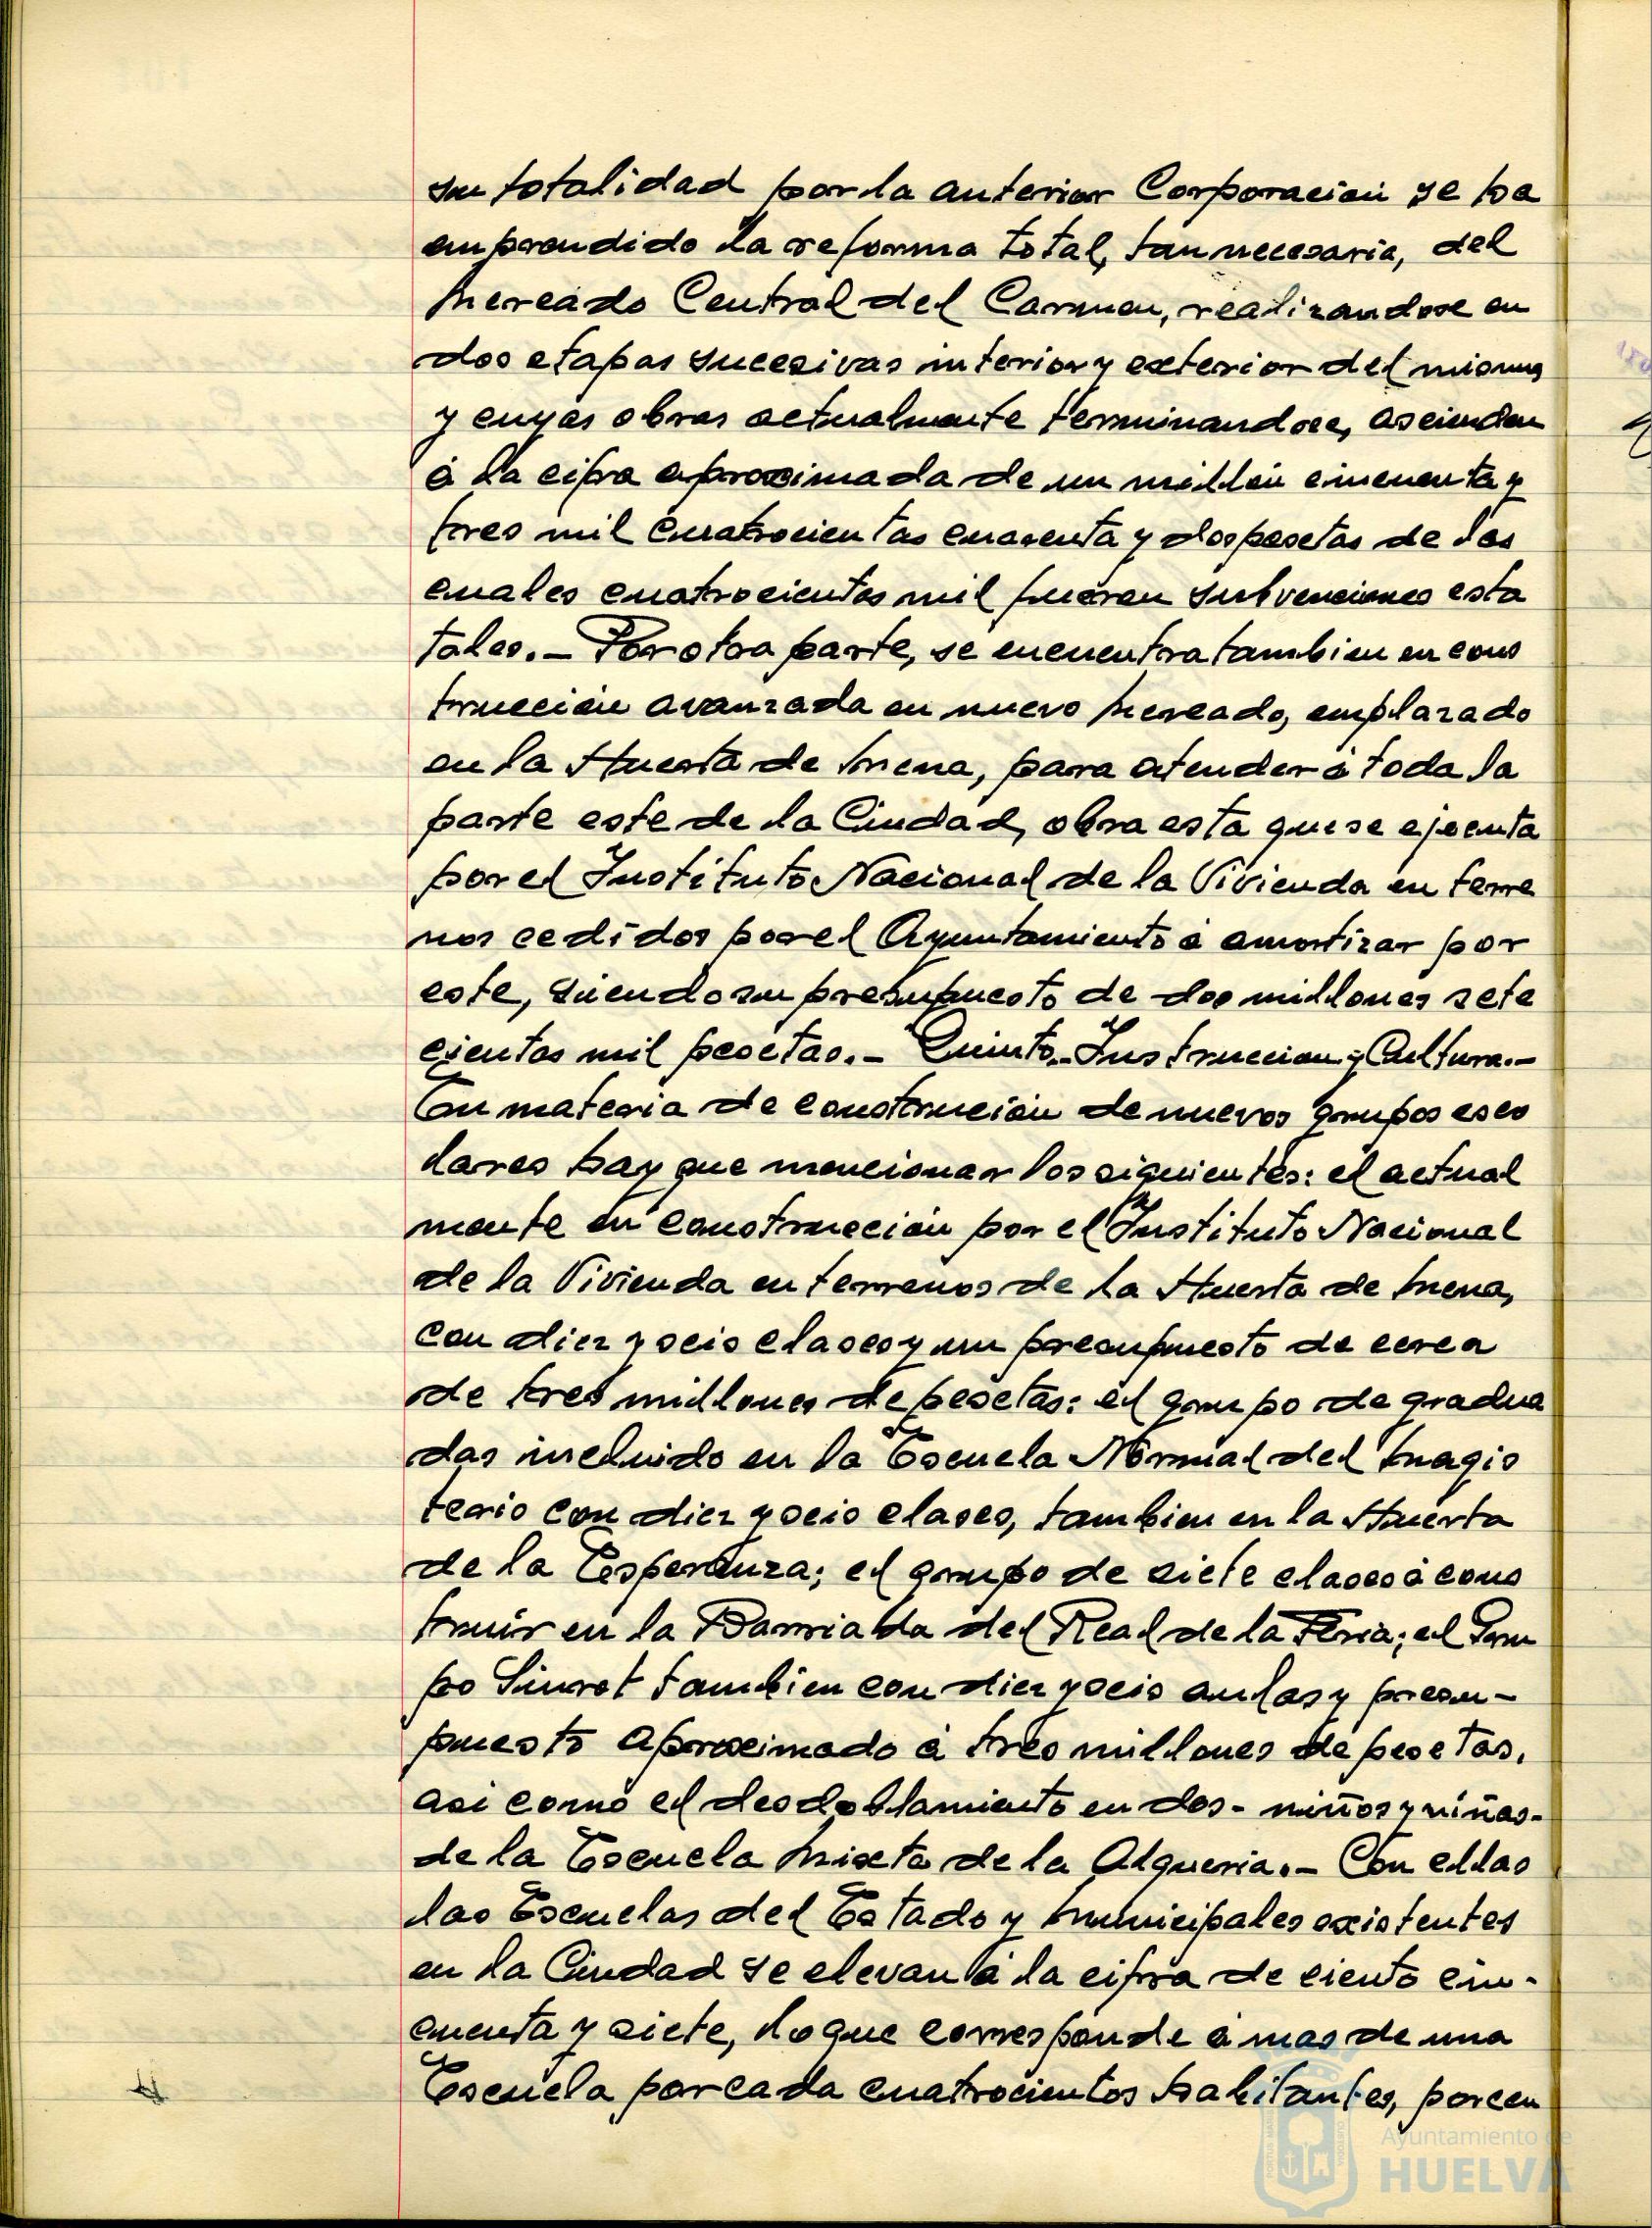 su totalidad por la anterior Corporación se ha
emprendido la reforma total, tan necesaria, del
Mercado Central del Carmen, realizandose en
dos etapas sucesivas interior y exterior del mismo
y cuyas obras actualmente terminandose, ascienden
á la cifra aproximada de un millón cincuenta y
tres mil cuatrocientas cuarenta y dos pesetas de las
cuales cuatrocientas mil fueron subvenciones esta
tales.- Por otra parte, se encuentra tambien en cons
trucción avanzada un nuevo Mercado, emplazado
en la Huerta de Mena, para atender á toda la
parte este de la Ciudad, obra esta que se ejecuta
por el Instituto Nacional de la Vivienda en terre
nos cedidos por el Ayuntamiento á amortizar por
este, siendo su presupuesto de dos millones sete
cientas mil pesetas.- Quinto.- Instruccion y Cultura.-
En materia de construción de nuevos grupos esco
lares hay que mencionar los siguientes: el actual
mente en construcción por el Instituto Nacional
de la Vivienda en terrenos de la Huerta de Mena,
con diez y seis clases y un presupuesto de cerca
de tres millones de pesetas: el grupo de gradua
das incluido en la Escuela Normal del Magis
terio con diez y seis clases, tambien en la Huerta
de la Esperanza; el grupo de siete clases á cons
truir en la Barriada del Real de la Feria; el Gru
po Siurot tambien con diez y seis aulas y presu-
puesto aproximado á tres millones de pesetas,
asi como el desdoblamiento en dos- niños y niñas-
de la Escuela Mixta de la Alqueria.- Con ellas
las Escuelas del Estado y Municipales existentes
en la Ciudad se elevan á la cifra de ciento cin-
cuenta y siete, lo que corresponde á mas de una
Escuela por cada cuatrocientos habitantes, porcen
Ayuntamiento de
HUELVA